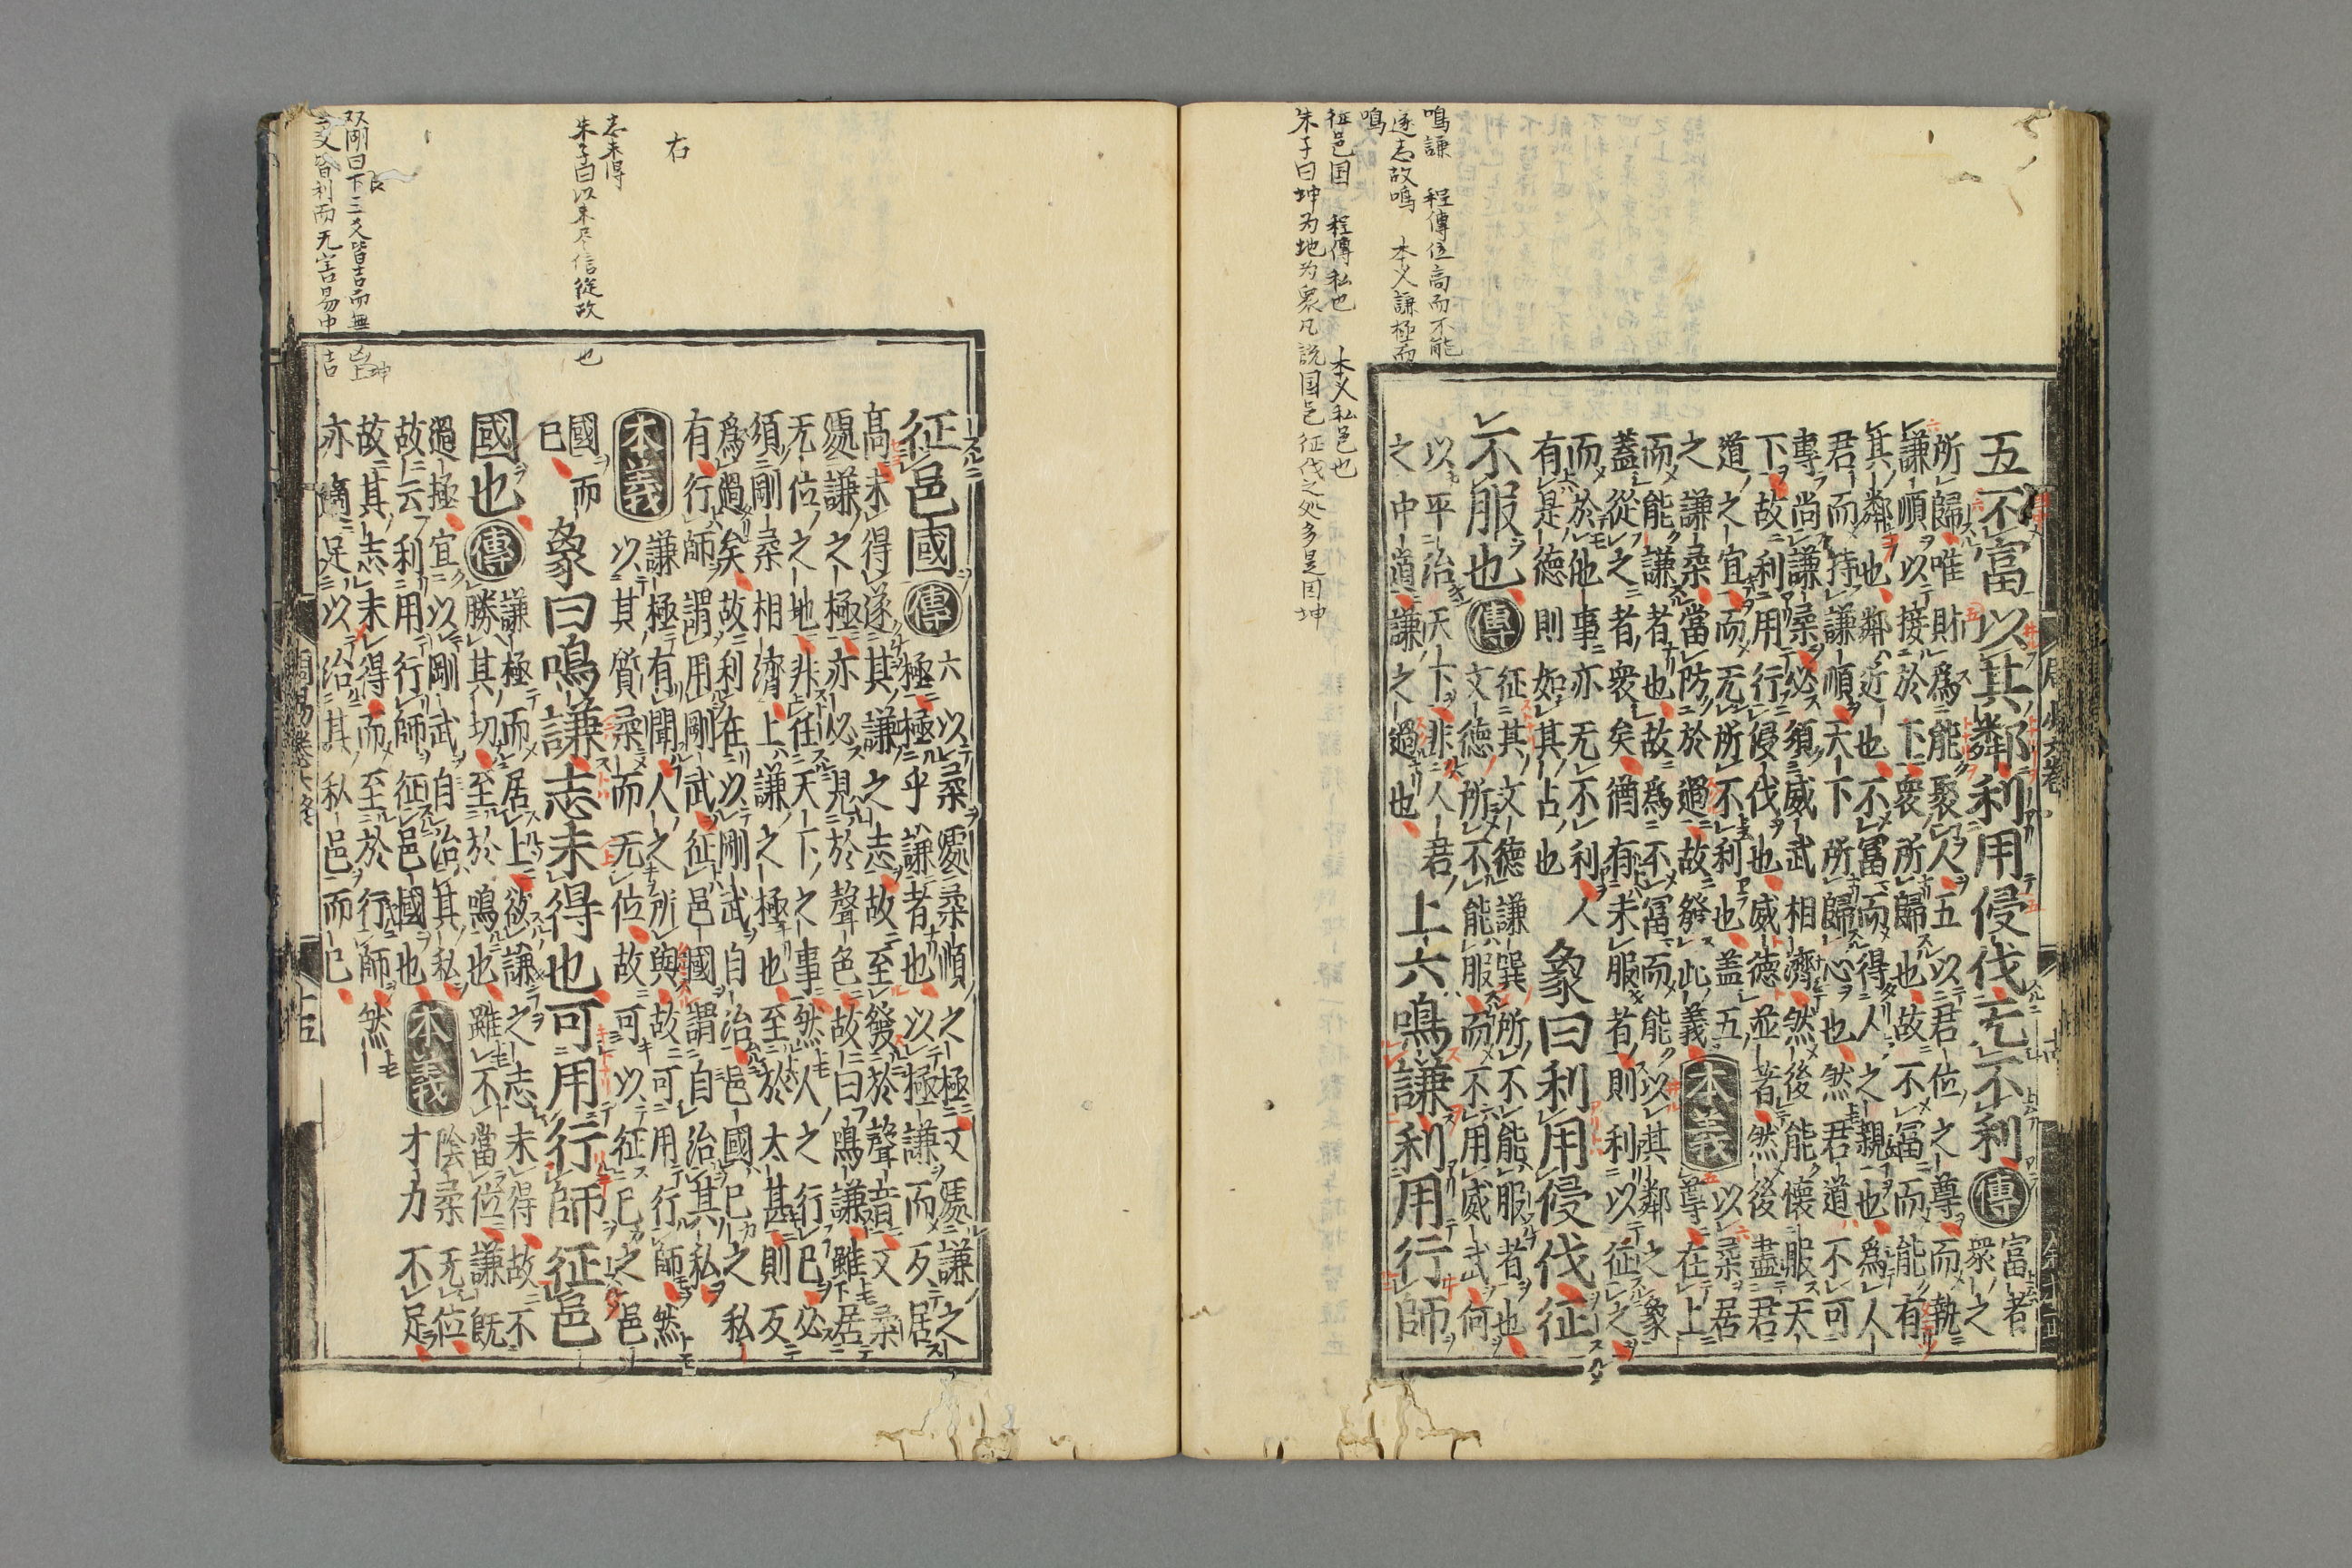 五不富以其鄰利用侵伐无不利傳富者
衆之
所歸唯財爲能聚人五以君位之尊而執
謙順以接於下衆所歸也故不富而能有
其鄰也鄰近也不富而得人之親也爲人
君而持謙順天下所歸心也然君道不可
專尚謙柔必須威武相濟然後能懷服天
下故利用行侵伐也威德並著然後盡君
道之宜而无所不利也蓋五
之謙柔當防於過故發此義
本義以柔居
尊在上
而能謙者也故爲不富而能以其鄰之象
蓋從之者衆矣猶有未服者則利以征之
而於他事亦无不利人
有是德則如其占也
象曰利用侵伐征
不服也傳征其文德謙巽所不能服者也
文德所不能服而不用威武何
以平治天下非人君
之中道謙之過也
上六鳴謙利用行師
鳴謙 程傳位高而不能
遂志故鳴 本义謙極而
鳴
征邑国 程傳私也 本义私邑也
朱子曰坤为地为衆凡説国邑征伐之処多是因坤
征邑國傳六以柔處柔順之極又處謙之
極極乎謙者也以極謙而反居
高未得遂其謙之志故至發於聲音又柔
處謙之極亦必見於聲色故曰鳴謙雖居
无位之地非任天下之事然人之行已必
須剛柔相濟上謙之極也至於太甚則反
爲過矣故利在以剛武自治邑國已之私
有行師謂用剛武征邑國謂自治其私
本義謙極有聞人之所與故可用行師然
以其質柔而无位故可以征已之邑
國而
已
象曰鳴謙志未得也可用行師征邑
國也傳謙極而居上欲謙之志未得故不
勝其切至於鳴也雖不當位謙既
過極宜以剛武自治其私
故云利用行師征邑國也
本義陰柔无位
才力不足
故其志未得而至於行師然
亦適足以治其私邑而已
右
志未得
朱子曰以未尽信從故也
双剛曰下三爻皆吉而無凶上
三爻皆利而无害易中吉